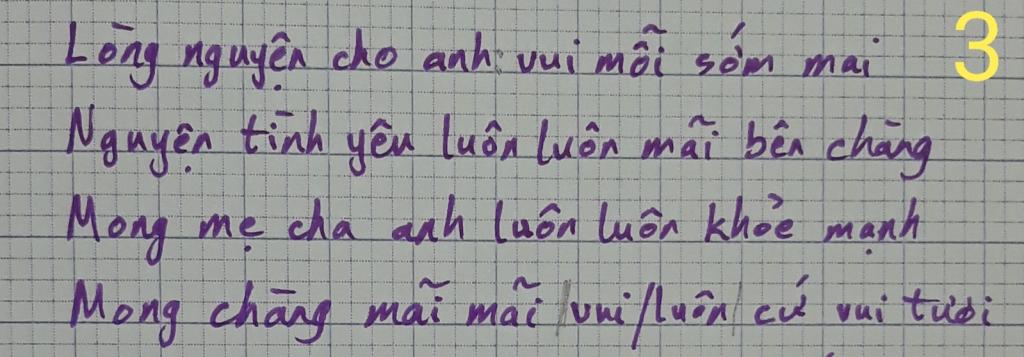 Lòng nguyện cho anh vui mỗi sớm mai 3
Nguyện tình yêu luôn luôn mãi bên chàng
Mong mẹ cha anh luôn luôn khỏe mạnh
Mong chàng mãi mãi vui/luôn cứ vui tươi